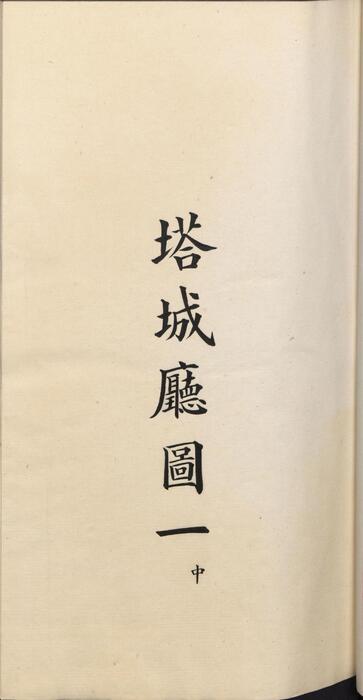 塔城廳圖一
中